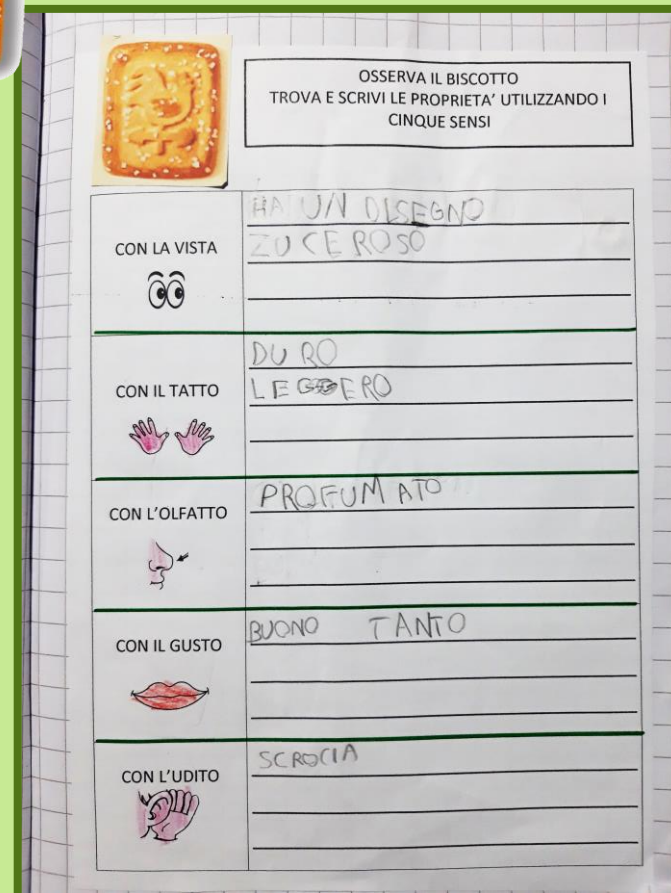 OSSERVA IL BISCOTTO
TROVA E SCRIVI LE PROPRIETA' UTILIZZANDO I
CINQUE SENSI
CON LA VISTA
HA UN DISEGNO
ZUCEROSO
CON IL TATTO
DURO
LEGGERO
CON L'OLFATTO
PROFUMATO
CON IL GUSTO
BUONO TANTO
CON L'UDITO
SCROCIA